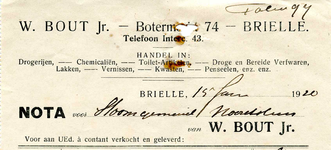 W. BOUT Jr. — Botermarkt 74 — BRIELLE.
Telefoon Interc. 43.
HANDEL IN:
Drogerijen, — Chemicaliën, — Toilet-Artikelen, — Droge en Bereide Verfwaren,
Lakken, — Vernissen, — Kwasten, — Penseelen, enz. enz.
BRIELLE, 15 Jan 1920
NOTA voor Stoomgemaal
van W. BOUT Jr.
Voor aan UEd. à contant verkocht en geleverd: